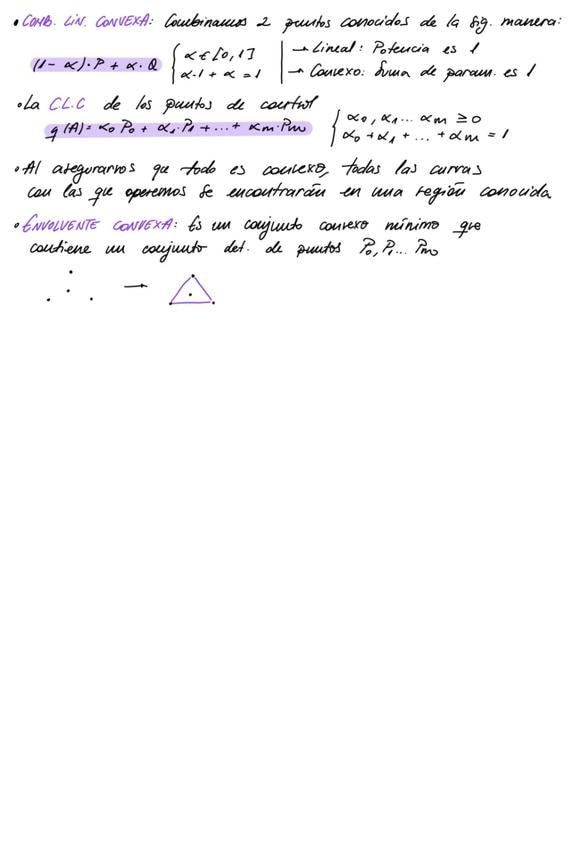 • COMB. LIN. CONVEXA: Combinamos 2 puntos conocidos de la sig. manera:
(1-α)·P + α·Q { α ∈ [0,1] | → Lineal: Potencia es 1
α-1 + α = 1 | → Convexo: Suma de param. es 1
• La C.L.C de los puntos de control
g(A) = α0 P0 + α1·P1 + ... + αm·Pm { α0, α1... αm ≥ 0
α0 + α1 + ... + αm = 1
• Al asegurarnos que todo es convexo, todas las curvas
con las que operemos se encontrarán en una región conocida
• ENVOLVENTE CONVEXA: Es un conjunto convexo mínimo que
contiene un conjunto det. de puntos P0, P1... Pm
→